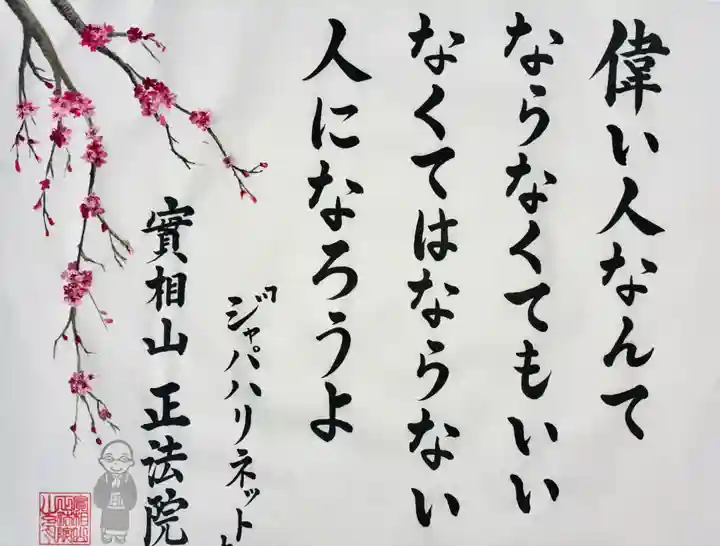 偉い人なんて
ならなくてもいい
なくてはならない
人になろうよ
「ジャパハリネット
實相山 正法院